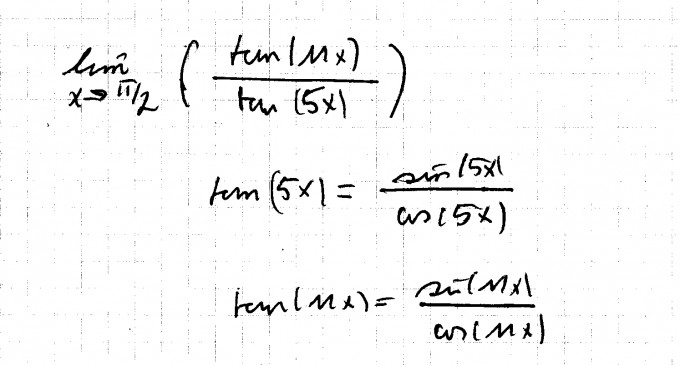 lim x→π/2 ( tan(11x) / tan(5x) )
tan(5x) = sin(5x) / cos(5x)
tan(11x) = sin(11x) / cos(11x)